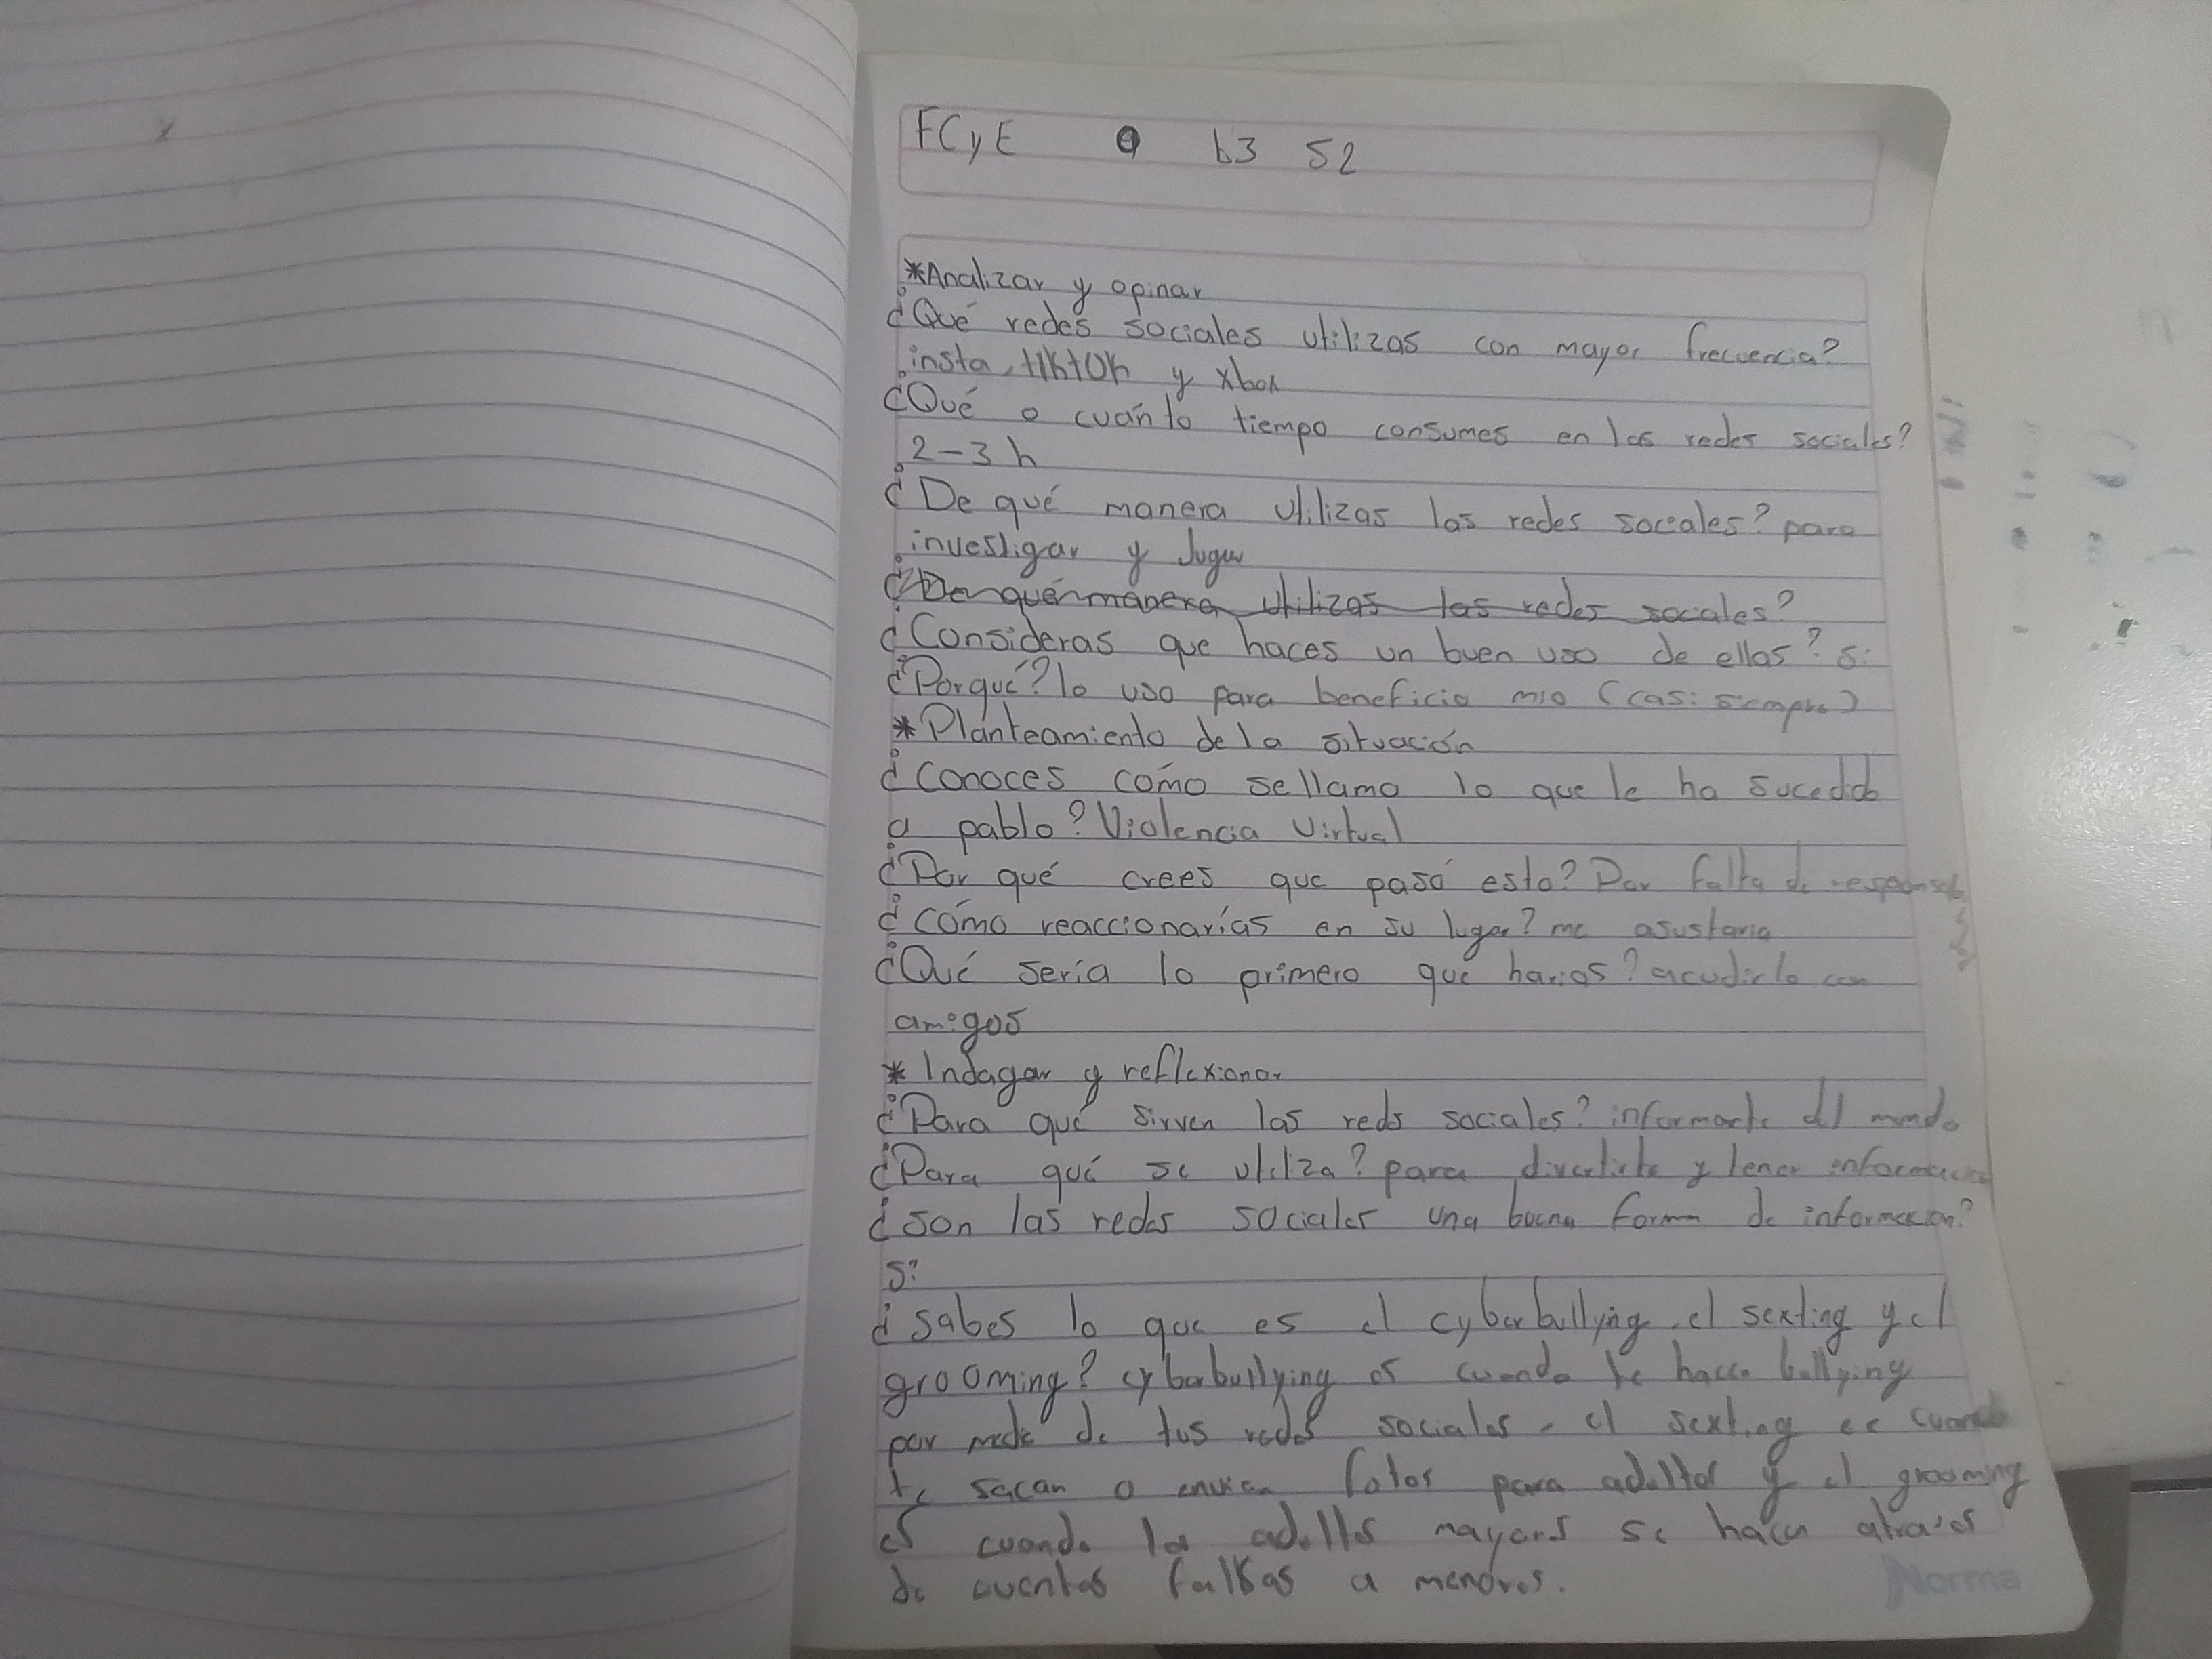 FCyE t3 S2
*Analizar y opinar
¿Qué redes sociales utilizas con mayor frecuencia?
insta, tiktok y xbox
¿Qué o cuánto tiempo consumes en las redes sociales?
2-3 h
¿De qué manera utilizas las redes sociales? para
investigar y Jugar
¿De qué manera utilizas las redes sociales?
¿Consideras que haces un buen uso de ellas? si
¿Porqué? lo uso para beneficio mio (casi siempre)
*Planteamiento de la situación
¿Conoces cómo sellama lo que le ha sucedido
a pablo? Violencia Virtual
¿Por qué crees que pasó esto? Por falta de
¿cómo reaccionarías en su lugar? me asustaria
¿Qué sería lo primero que harias? acudirlo con
amigos
* Indagar y reflexionar
¿Para qué sirven las reds sociales? informarte del mundo
¿Para qué se utiliza? para divertirte y tener informacion
¿son las redes sociales una buena forma de informacion?
si
¿sabes lo que es el cyberbullying, el sexting y el
grooming? cyberbullying es cuando te hacen bullying
por medio de tus redes sociales, el sexting es cuando
te sacan o envian fotos para adultos y el grooming
es cuando los adultos mayores se hacen
de cuentas falsas a menores.
Norma